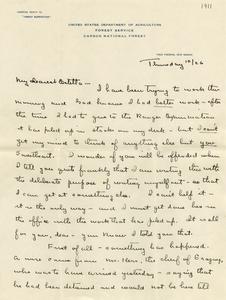 1911
ADDRESS REPLY TO
"FOREST SUPERVISOR"
UNITED STATES DEPARTMENT OF AGRICULTURE
FOREST SERVICE
CARSON NATIONAL FOREST
Thursday 10/26
My Dearest Estella —
I have been trying to work this
morning and Said because I had better work - after
the time I had to give to the Ranger Examination
it has piled up in stacks on my desk - but I can't
get my mind to think of anything else but you
Sweetheart. I wonder if you will be offended when
I tell you quite frankly that I am writing this with
the deliberate purpose of writing myself out so that
I can get at something else. I can't help it -
it is the only way - and I must get done here in
the office with the work that has piled up. It is all
for you, dear - you know I told you that.
First of all - something has happened.
A wire came from Mr. Kerr, the chief of Grazing,
who was to have arrived yesterday - saying that
he had been detained and would not be here till